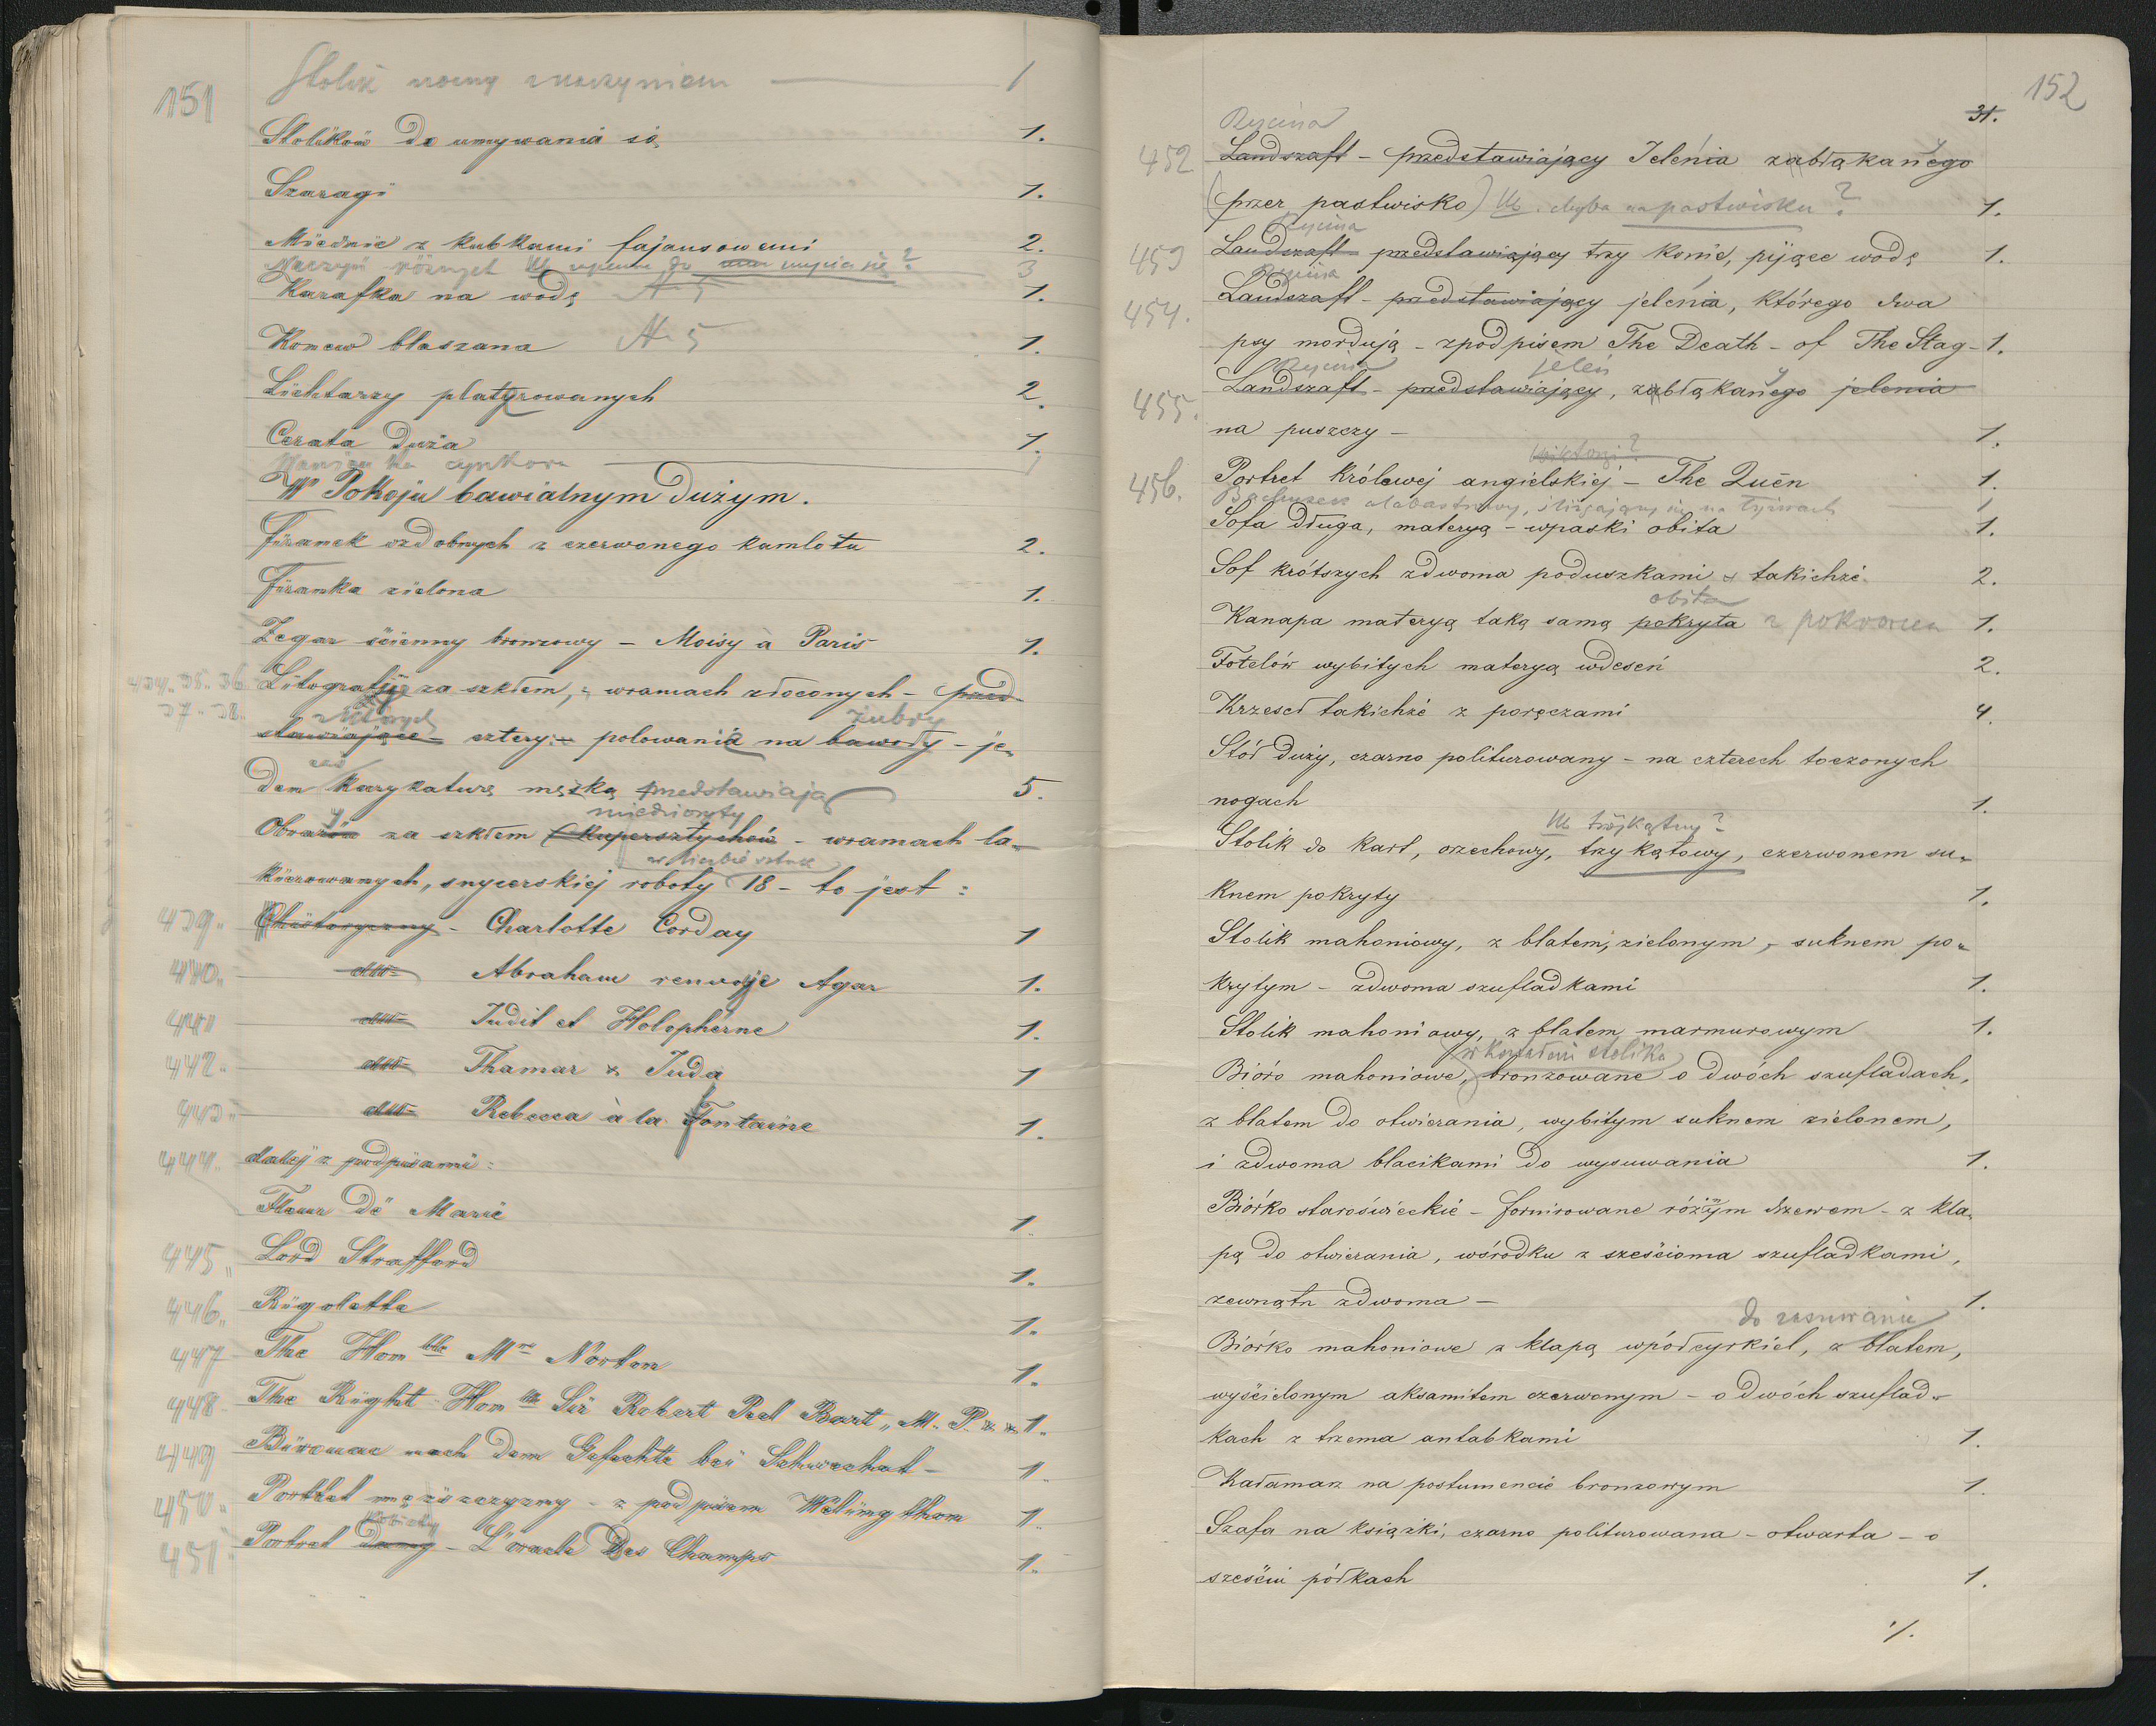 151
Stolik nocny z naczyniem 1
Stolików do umywania się 1.
Szaragi 1.
Miednic z kubkami fajansowemi 2.
Naczyń różnych do mycia się? 3
Karafka na wodę N 5 1.
Konew blaszana N 5 1.
Lichtarzy platyrowanych 2.
Cerata duża 1.
Wanienka cynkowa 1
W Pokoju bawialnym dużym.
Firanek ozdobnych z czerwonego kamlotu 2.
Firanka zielona 1.
Zegar ścienny bronzowy – Moisy à Paris 1.
434. 35. 36 Litografje za szkłem, wramach złoconych – przed-
37. 38. z których żubry
stawiające – cztery polowania na bawoły – je-
den karykaturę męską przedstawiają 5.
miedzioryty
Obrazów za szkłem (kupersztychów – wramach la-
w liczbie sztuk
kierowanych, snycerskiej roboty 18 – to jest:
439. Charlotte Corday 1
440. dtto Abraham renvoje Agar 1.
441 dtto Judit et Holopherne 1.
442. dtto Thamar & Juda 1
443. dtto Rebecca à la Fontaine 1.
444. dalej z podpisami:
Fleur de Marie 1
445. Lord Strafford 1.
446. Rigolette 1.
447 The Hon ble Mrs Norton 1.
448 The Right Hon ble Sir Robert Peel Bart, M. P. 1.
449 Bivouac nach dem Gefechte bei Schwechat – 1
450. Portret mężczyzny – z podpisem Welingthon 1
kobiety
451 Portret Damy – L'oracle Des Champs 1.
152
31.
Rycina
452 Landszaft – przedstawiający Jelenia zabłąkanego
(przez pastwisko) chyba na pastwisku? 1.
Rycina
453 Landszaft przedstawiający trzy konie, pijące wodę 1.
Rycina
454. Landszaft – przedstawiający jelenia, którego dwa
psy mordują – zpodpisem The Death – of The Stag – 1.
Rycina jeleń
455. Landszaft – przedstawiający, zabłąkanego jelenia
na puszczy – 1.
Wiktorji?
456. Portret Królowej angielskiej – The Quēn 1.
Bachusek alabastrowy, ślizgający się na łyżwach 1
Sofa długa, materyą – wpaski obita 1.
Sof krótszych zdwoma poduszkami z takichże 2.
obita
Kanapa materyą taką samą pokryta z pokrowcem 1.
Fotelów wybitych materyą wdeseń 2.
Krzeseł takichże z poręczami 4.
Stół duży, czarno politurowany – na czterech toczonych
nogach 1.
trójkątny?
Stolik do kart, orzechowy, trzykątowy, czerwonem su-
knem pokryty 1.
Stolik mahoniowy, z blatem, zielonym, suknem po-
krytym – zdwoma szufladkami 1.
Stolik mahoniowy, z blatem marmurowym 1.
w kształcie stolika
Bióro mahoniowe, bronzowane o dwóch szufladach,
z blatem do otwierania, wybitym suknem zielonem,
i zdwoma blacikami do wysuwania 1.
Biórko staroświeckie – fornirowane różnym drzewem – z kla-
pą do otwierania, wśrodku z sześcioma szufladkami,
zewnątrz zdwoma – 1.
do zasuwania
Biórko mahoniowe z klapą wpółcyrkiel, z blatem,
wyścielonym aksamitem czerwonym – o dwóch szuflad-
kach z trzema antabkami 1.
Kałamarz na postumencie bronzowym 1.
Szafa na książki, czarno politurowana – otwarta – o
sześciu półkach 1.
·/.